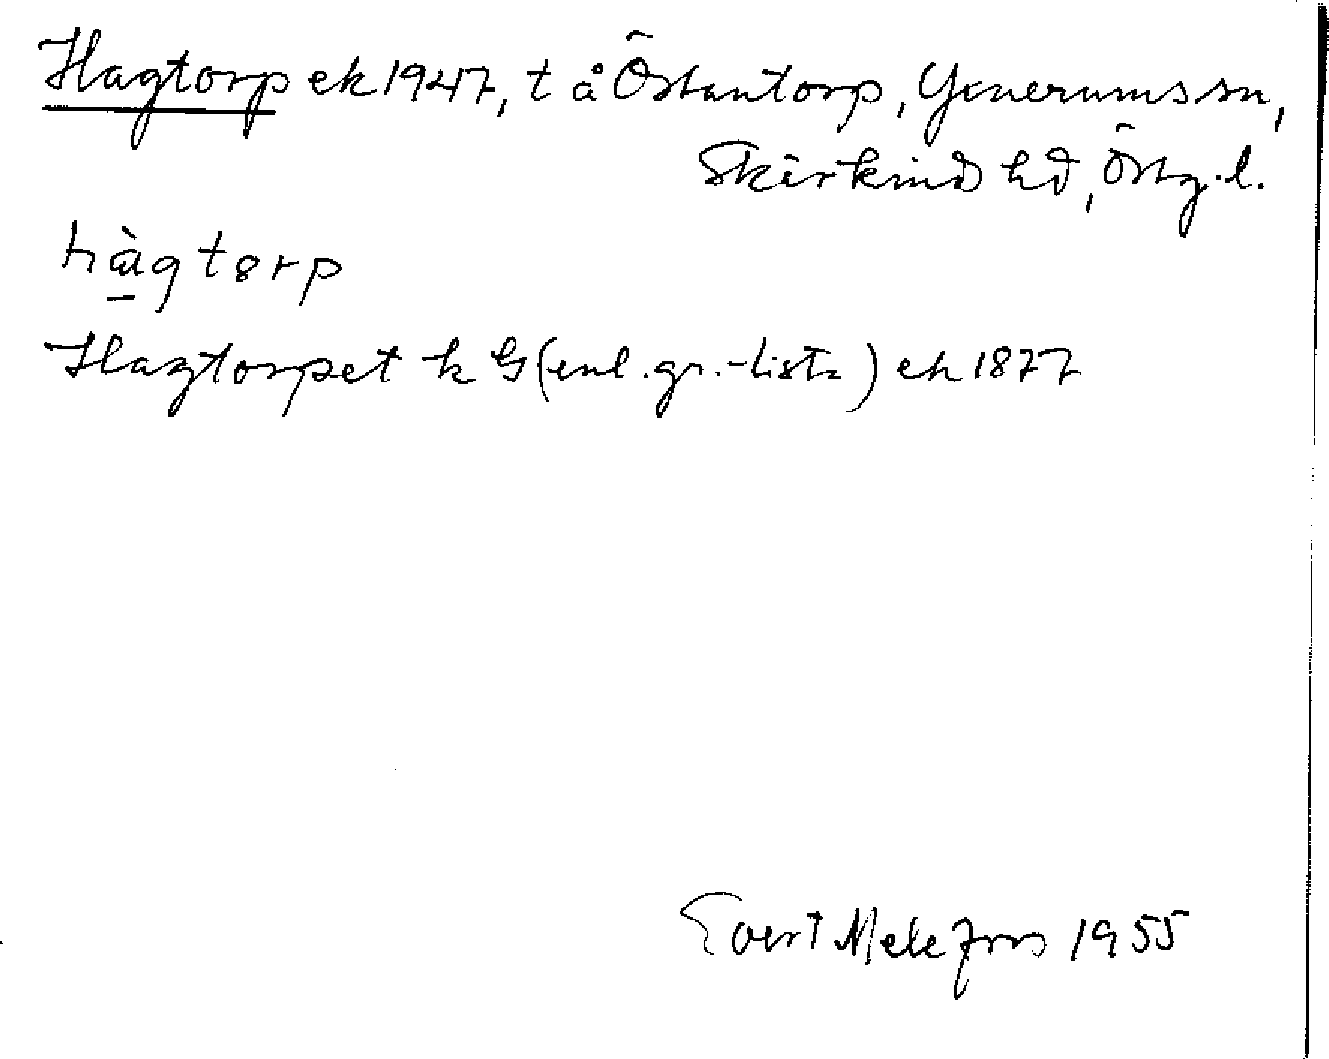 Hagtorp ek 1947, t å Östantorp, Gonerums sn,
Skärkind hd, Östg.l.
hàgtorp
Hagtorpet k G (enl. gr.-lista) ek 1877
Evert Melefors 1955